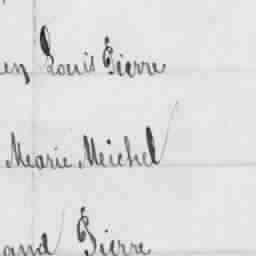 en Louis Pierre
Mearie Meichel
and Pierre